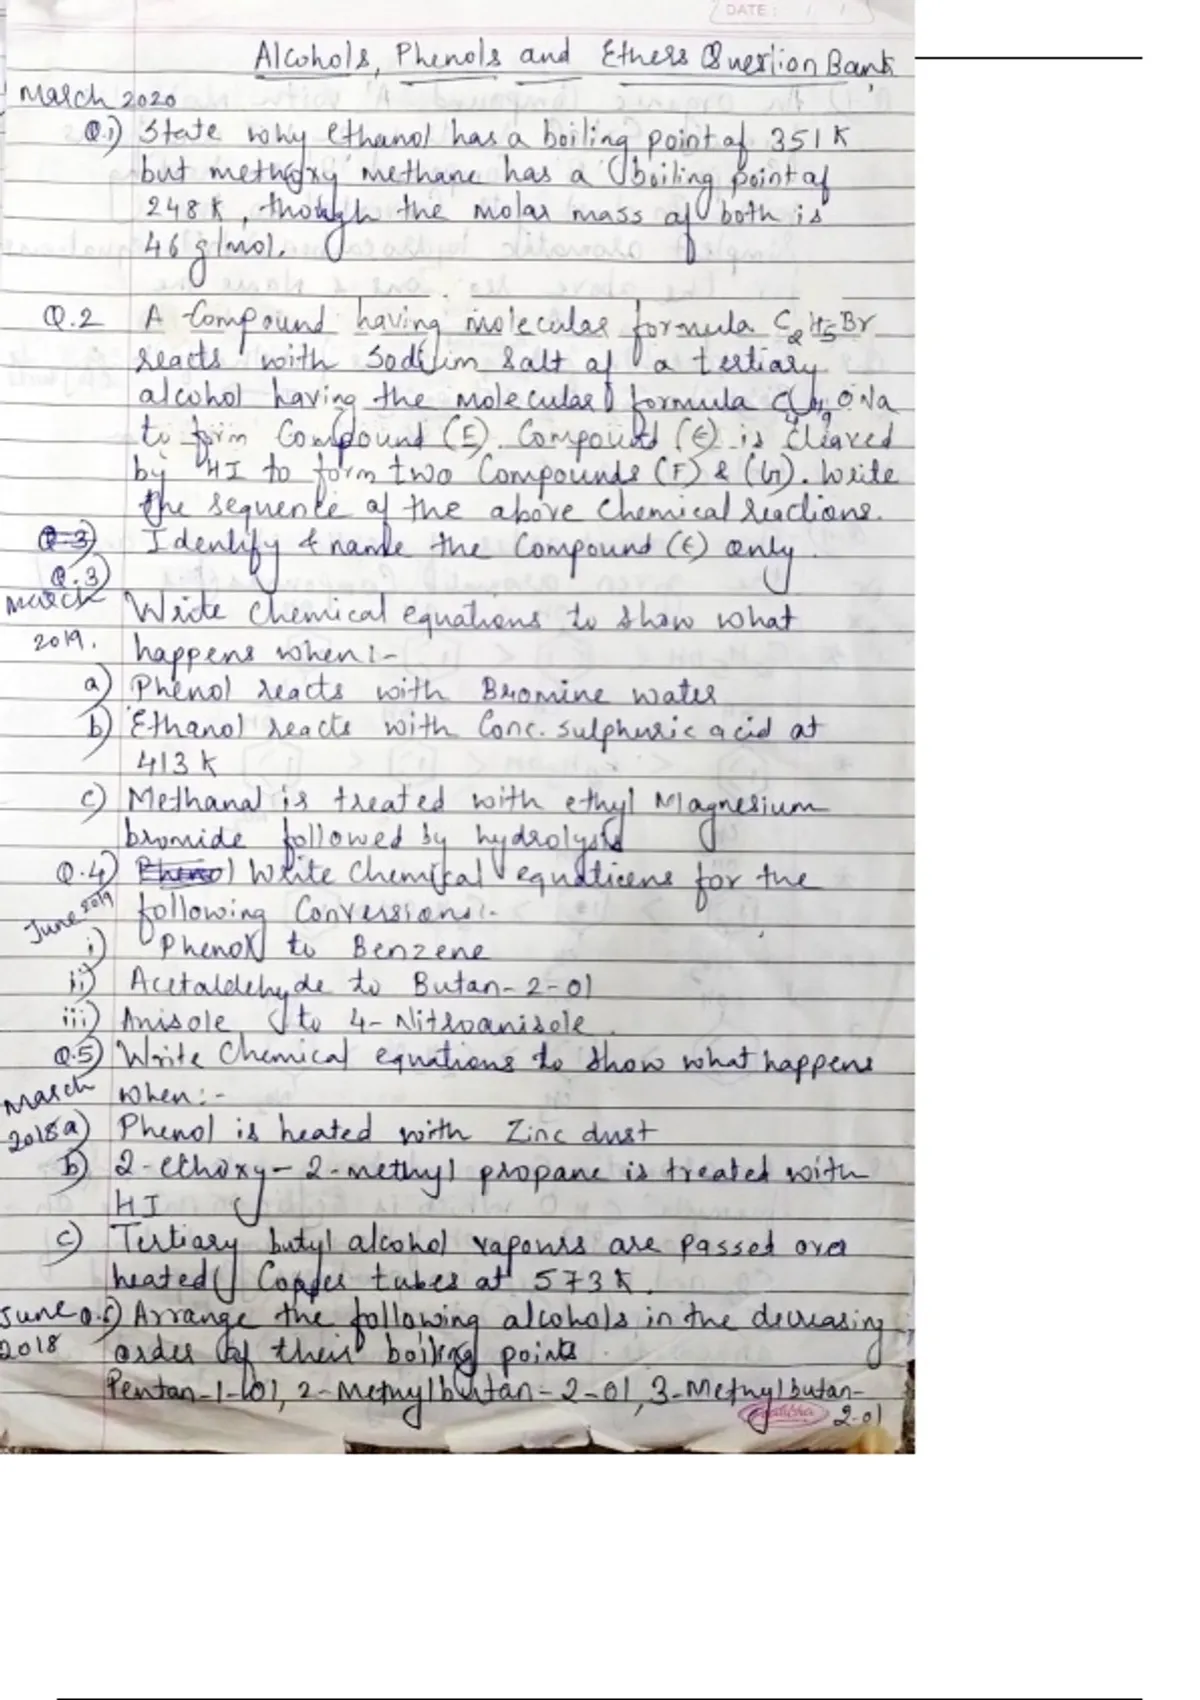 DATE: / /
Alcohols, Phenols and Ethers Question Bank
March 2020
Q.1) State why ethanol has a boiling point of 351 K
but methoxy methane has a boiling point of
248 K, though the molar mass of both is
46 g/mol.
Q.2 A Compound having molecular formula C2H5Br
reacts with Sodium Salt of a tertiary
alcohol having the molecular formula C4H9ONa
to form Compound (E). Compound (E) is cleaved
by HI to form two Compounds (F) & (G). Write
the sequence of the above Chemical reactions.
Q.3) Identify & name the Compound (E) only.
Q.3)
March Write Chemical equations to show what
2019. happens when:-
a) Phenol reacts with Bromine water
b) Ethanol reacts with Conc. sulphuric acid at
413 K
c) Methanal is treated with ethyl Magnesium
bromide followed by hydrolysis
Q.4) Phenol Write Chemical equations for the
June 2019 following Conversions:-
i) Phenol to Benzene
ii) Acetaldehyde to Butan-2-ol
iii) Anisole to 4-Nitroanisole.
Q.5) Write Chemical equations to show what happens
March when:-
2018 a) Phenol is heated with Zinc dust
b) 2-ethoxy-2-methyl propane is treated with
HI
c) Tertiary butyl alcohol vapours are passed over
heated Copper tubes at 573 K.
June Q.6) Arrange the following alcohols in the decreasing
2018 order of their boiling points.
Pentan-1-ol, 2-Methylbutan-2-ol, 3-Methylbutan-
2-ol